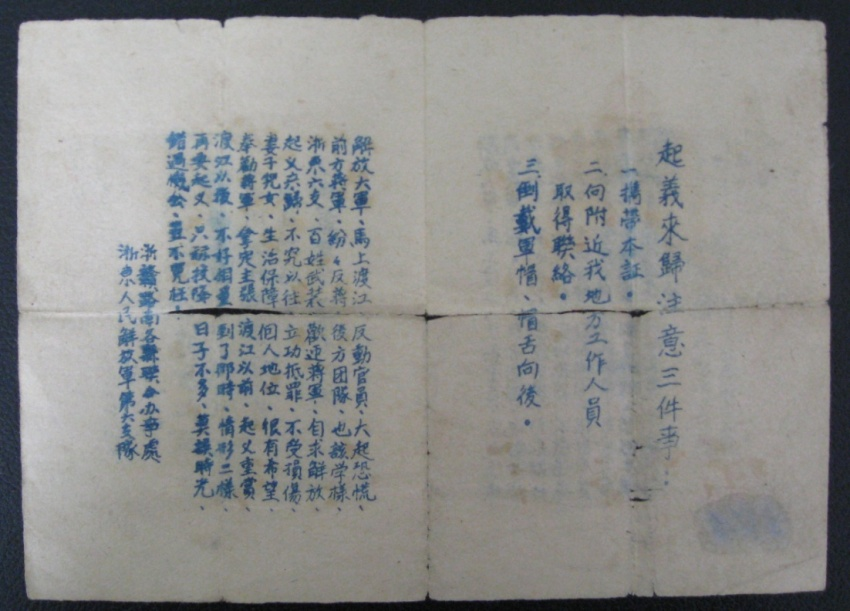 起義來歸注意三件事：
一、攜帶本証。
二、向附近我地方工作人員
取得聯絡。
三、倒戴軍帽、帽舌向後。
解放大軍、馬上渡江、反動官員、大起恐慌、
前方蔣軍、紛々反蔣、後方团隊、也該学樣、
浙東六支、百姓武装、歡迎蔣軍、自求解放、
起义来歸、不究以往、立功抵罪、不受損傷、
妻子児女、生活保障、個人地位、很有希望、
奉勸蔣軍、拿定主張、渡江以前、起义重賞、
渡江以後、不好商量、到了那時、情形二樣、
再要起义、只称投降、日子不多、莫挨時光、
錯過機会、豈不冤枉！
浙贛路南各縣聯合办事處
浙東人民解放軍第六支隊